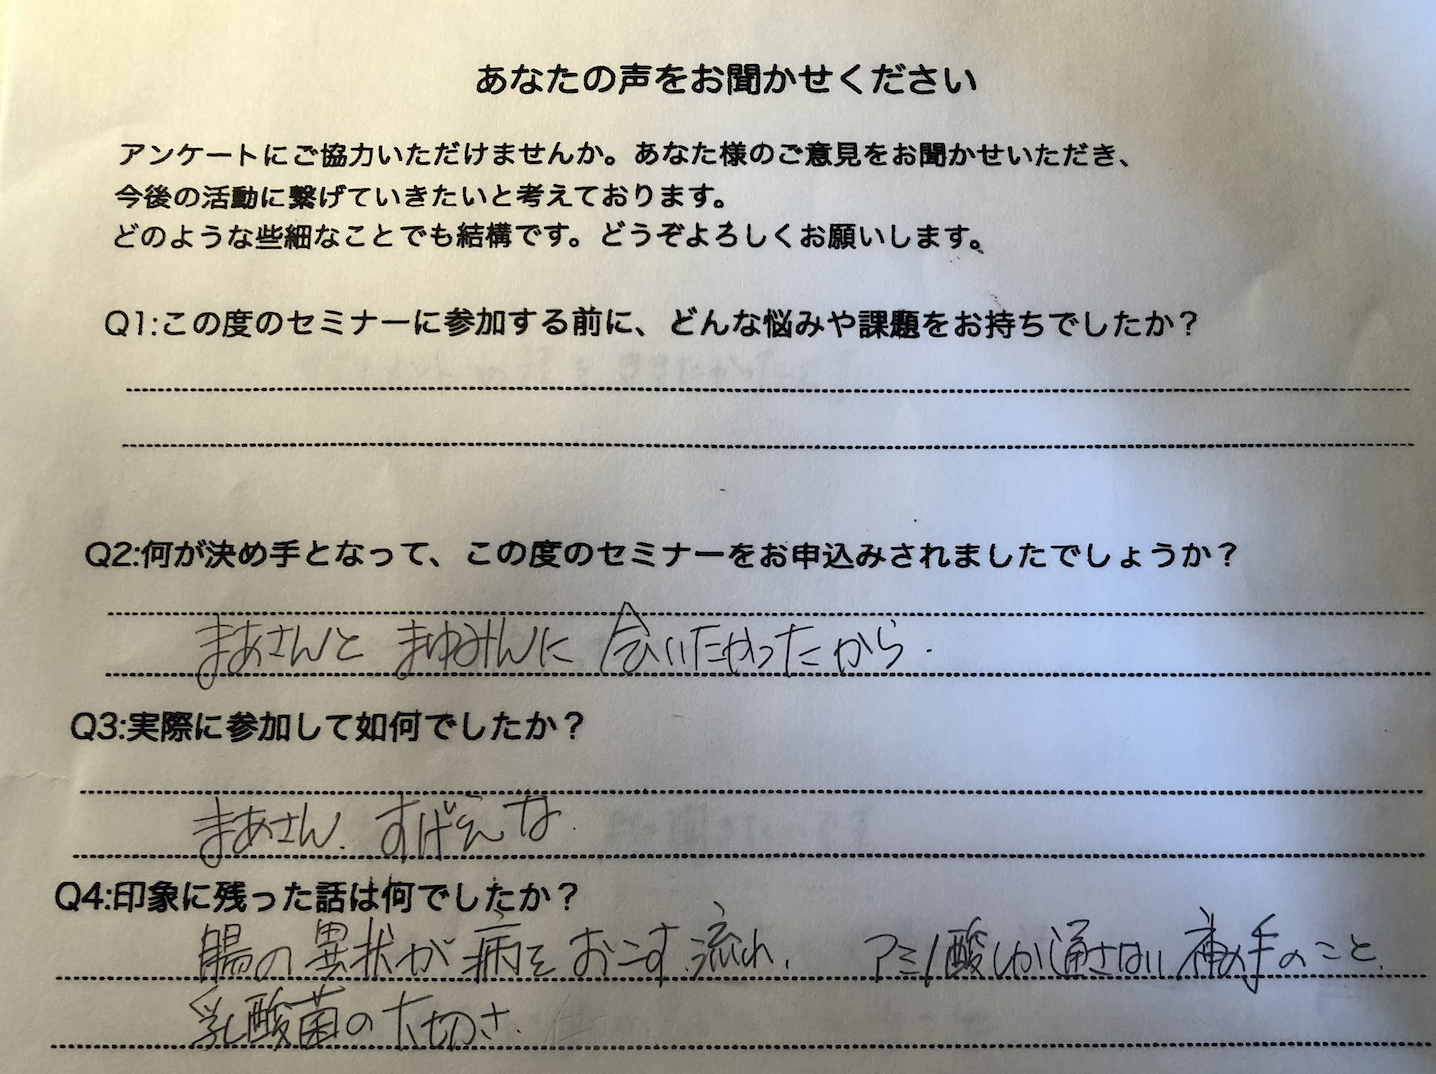 あなたの声をお聞かせください
アンケートにご協力いただけませんか。あなた様のご意見をお聞かせいただき、
今後の活動に繋げていきたいと考えております。
どのような些細なことでも結構です。どうぞよろしくお願いします。
Q1:この度のセミナーに参加する前に、どんな悩みや課題をお持ちでしたか？
Q2:何が決め手となって、この度のセミナーをお申込みされましたでしょうか？
まあさんと まゆみんに 会いたかったから.
Q3:実際に参加して如何でしたか？
まあさん. すげえな.
Q4:印象に残った話は何でしたか？
腸の異状が病をおこす流れ. アミノ酸しか通さない神の手のこと.
乳酸菌の大切さ.